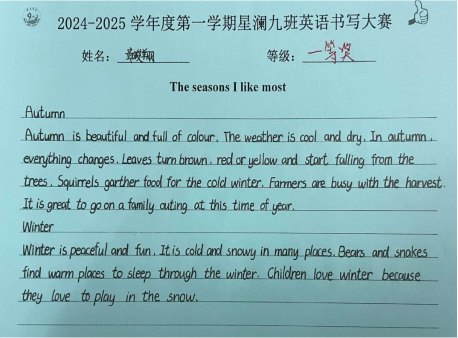 2024-2025 学年度第一学期星澜九班英语书写大赛
姓名： 等级：一等奖
The seasons I like most
Autumn
Autumn is beautiful and full of colour. The weather is cool and dry. In autumn,
everything changes. Leaves turn brown, red or yellow and start falling from the
trees. Squirrels garther food for the cold winter. Farmers are busy with the harvest.
It is great to go on a family outing at this time of year.
Winter
Winter is peaceful and fun. It is cold and snowy in many places. Bears and snakes
find warm places to sleep through the winter. Children love winter because
they love to play in the snow.